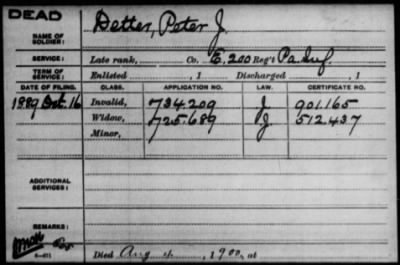 DEAD
NAME OF SOLDIER: Detter, Peter J.
SERVICE: Late rank, Co. E, 200 Reg't Pa. Inf.
TERM OF SERVICE: Enlisted , 1 Discharged , 1
DATE OF FILING. CLASS. APPLICATION NO. LAW. CERTIFICATE NO.
1889 Oct. 16 Invalid, 734.209 J. 901.165
Widow, 725.689 J. 512.437
Minor,
ADDITIONAL SERVICES:
REMARKS:
Died Aug 4, 1900, at